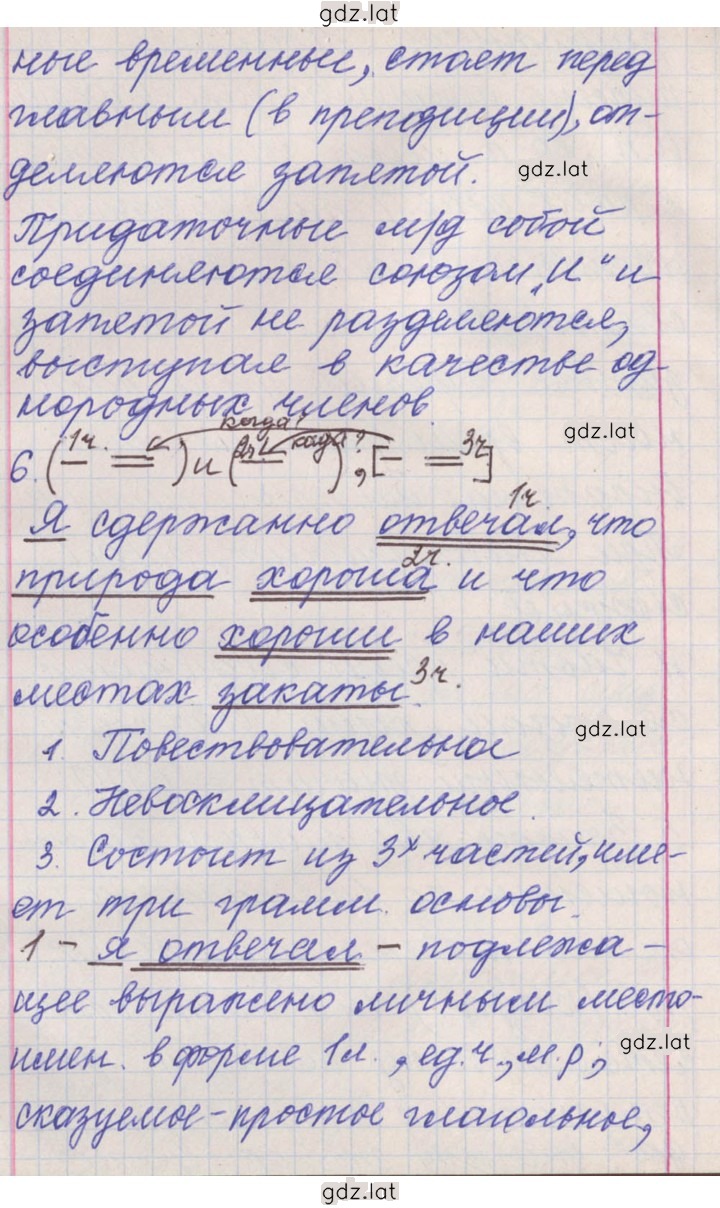 gdz.lat
ные временные, стоят перед
главным (в препозиции), от-
деляются запятой.
gdz.lat
Придаточные м/д собой
соединяются союзом „и“ и
запятой не разделяются,
выступая в качестве од
нородных членов.
gdz.lat
когда?
1ч. 2ч. когда? 3ч
6. ( ) и ( ) , [ ]
1ч.
Я сдержанно отвечал, что
2ч.
природа хороша и что
особенно хороши в наших
местах закаты 3ч.
gdz.lat
1. Повествовательное
2. Невосклицательное.
3. Состоит из 3х частей, име-
ет три грамм. основы.
1 – я отвечал – подлежа-
щее выражено личным место-
имен. в форме 1л., ед.ч., м.р;
gdz.lat
сказуемое – простое глагольное,
gdz.lat